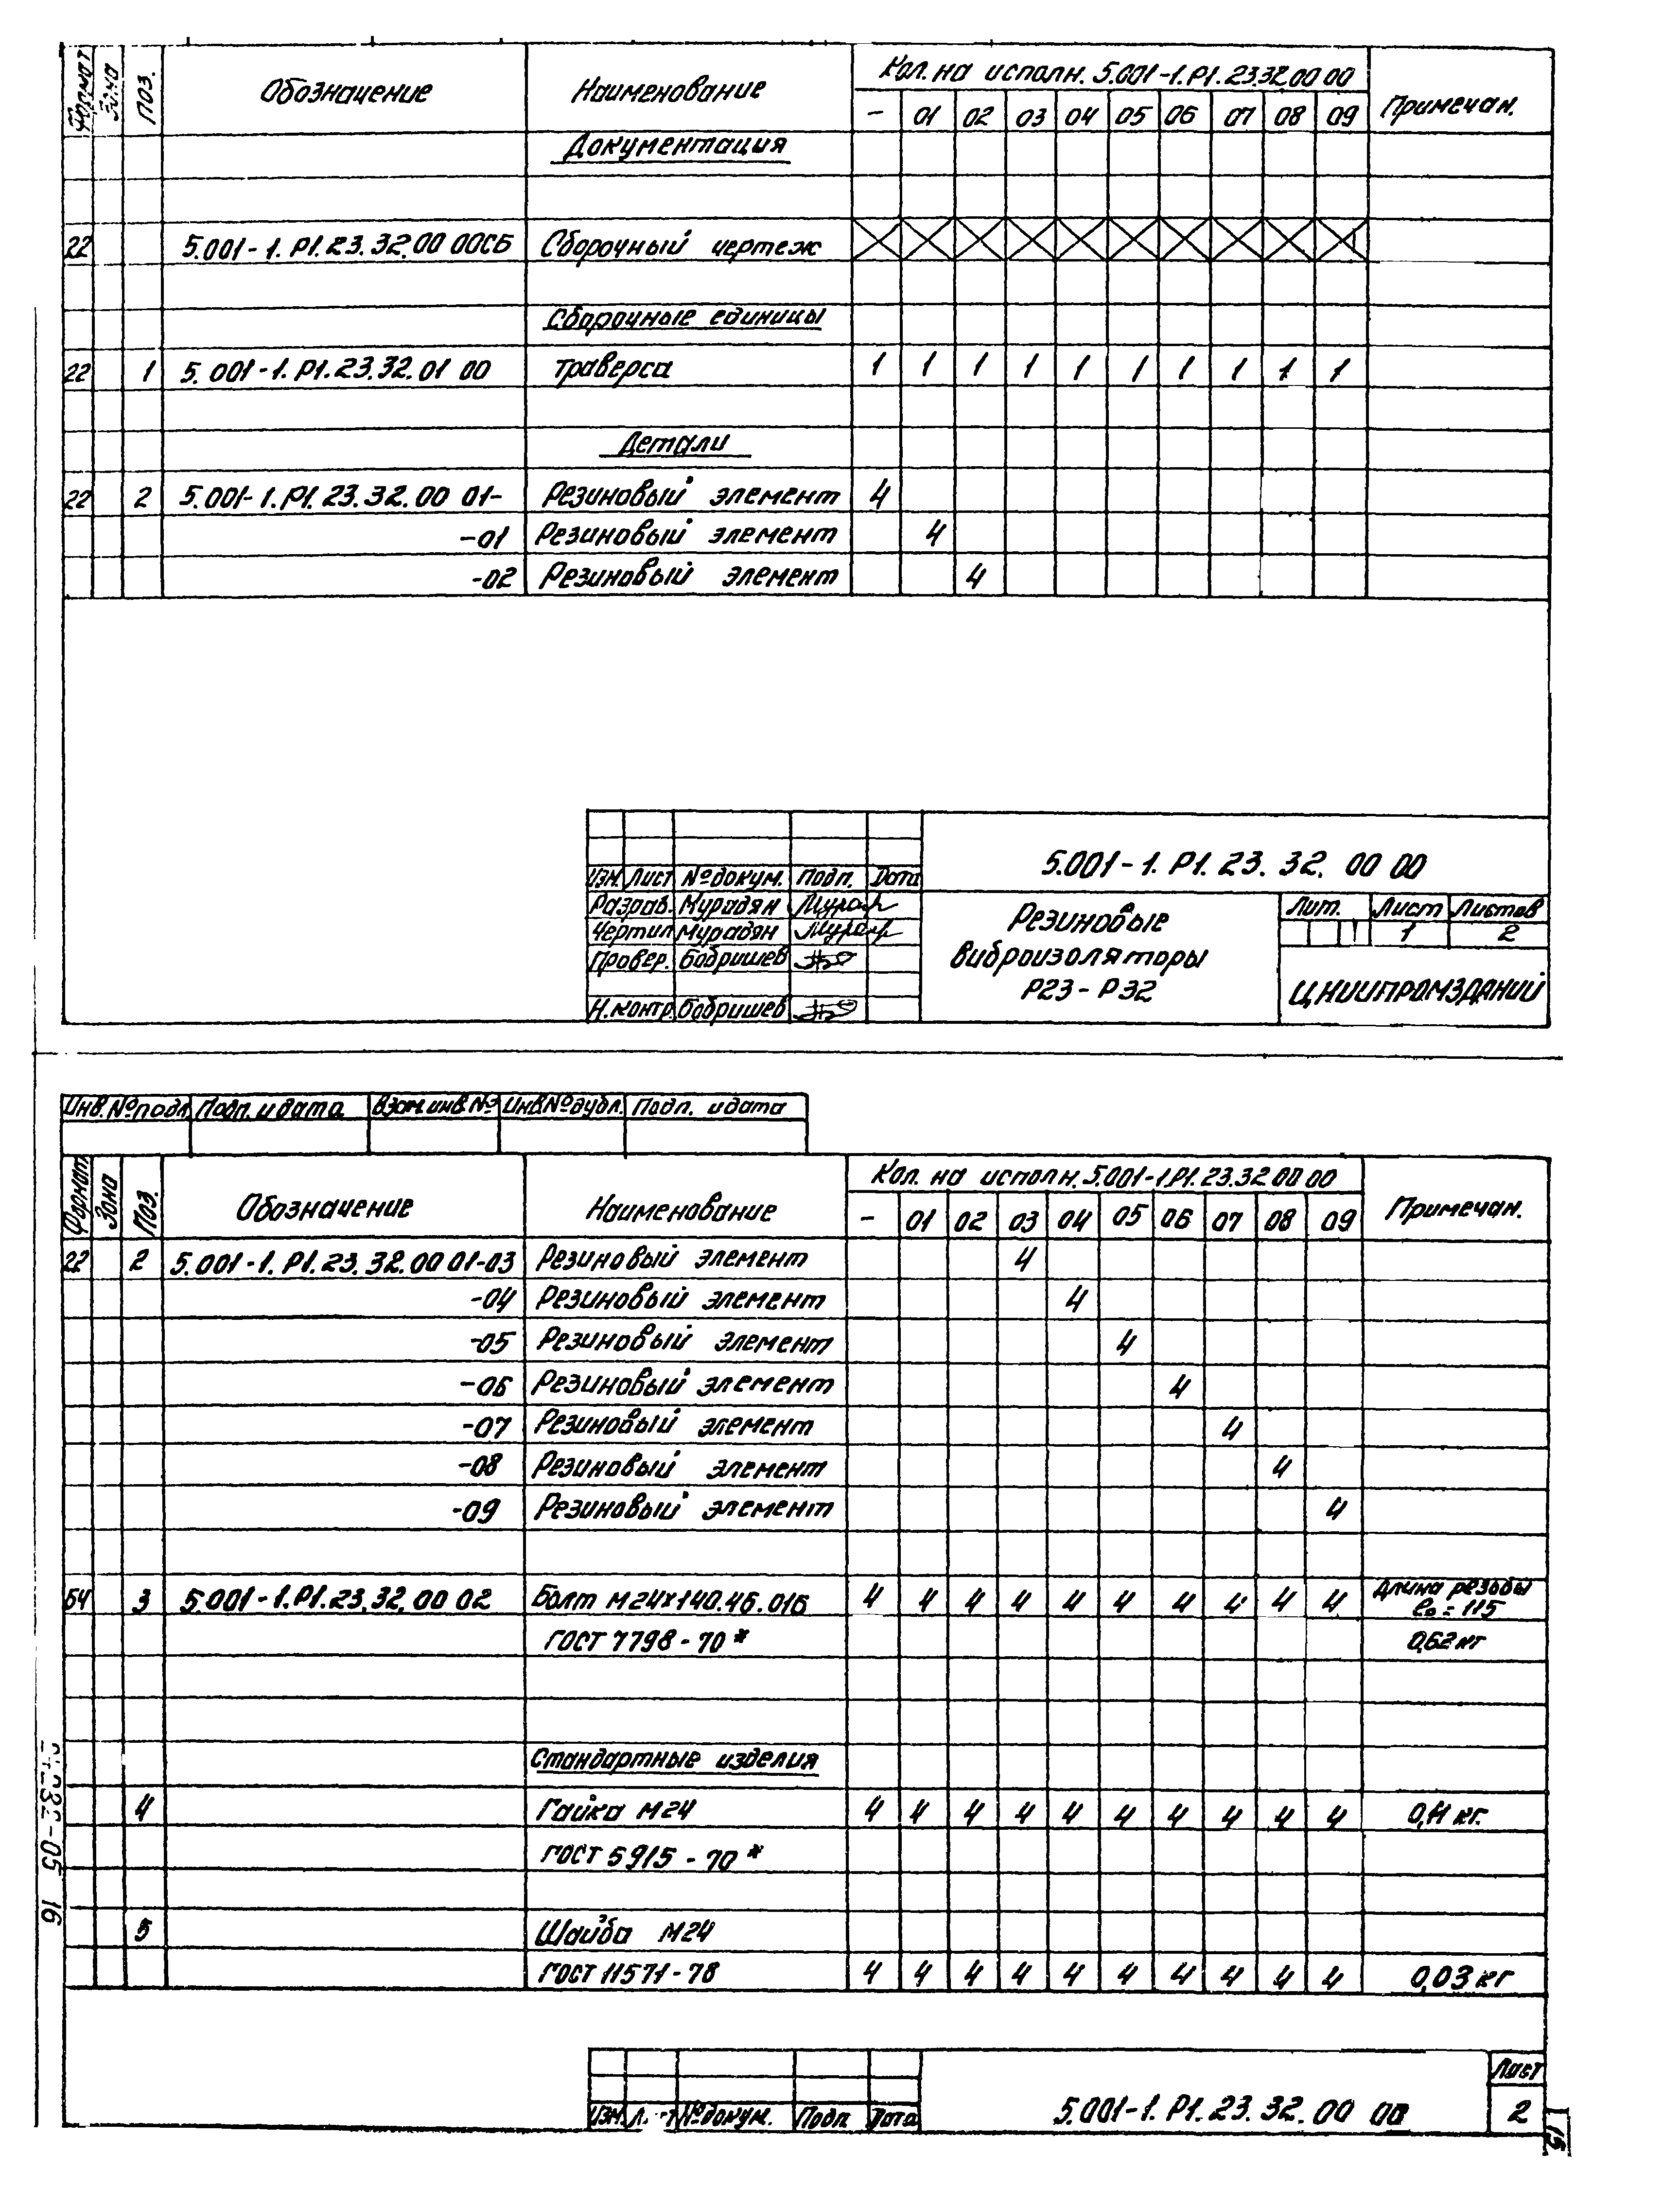 Формат Зона ПОЗ. Обозначение Наименование Кол. на исполн. 5.001-1.Р1.23.32.00 00 Примечан.
- 01 02 03 04 05 06 07 08 09
Документация
22 5.001-1.Р1.23.32.00 00СБ Сборочный чертеж
Сборочные единицы
22 1 5.001-1.Р1.23.32.01 00 Траверса 1 1 1 1 1 1 1 1 1 1
Детали
22 2 5.001-1.Р1.23.32.00 01- Резиновый элемент 4
-01 Резиновый элемент 4
-02 Резиновый элемент 4
5.001-1.Р1.23.32.00 00
Изм. Лист № докум. Подп. Дата
Разраб. Мурадян
Чертил Мурадян
Провер. Бобришев
Н.контр. Бобришев
Резиновые
виброизоляторы
Р23-Р32
Лит. Лист Листов
1 2
ЦНИИПРОМЗДАНИЙ
Инв.№подл. Подп. и дата Взам.инв.№ Инв.№дубл. Подп. и дата
Формат Зона Поз. Обозначение Наименование Кол. на исполн. 5.001-1.Р1.23.32 00 00 Примечан.
- 01 02 03 04 05 06 07 08 09
22 2 5.001-1.Р1.23.32.00 01-03 Резиновый элемент 4
-04 Резиновый элемент 4
-05 Резиновый элемент 4
-06 Резиновый элемент 4
-07 Резиновый элемент 4
-08 Резиновый элемент 4
-09 Резиновый элемент 4
БЧ 3 5.001-1.Р1.23.32.00 02 Болт М24х140.46.016 4 4 4 4 4 4 4 4 4 4 Длина резьбы
ℓ₀ = 115
ГОСТ 7798-70* 0,62 кг
Стандартные изделия
4 Гайка М24 4 4 4 4 4 4 4 4 4 4 0,11 кг.
ГОСТ 5915-70*
5 Шайба М24
ГОСТ 11571-78 4 4 4 4 4 4 4 4 4 4 0,03 кг
Изм. № докум. Подп. Дата
5.001-1.Р1.23.32.00 00
Лист
2
-05 16
15